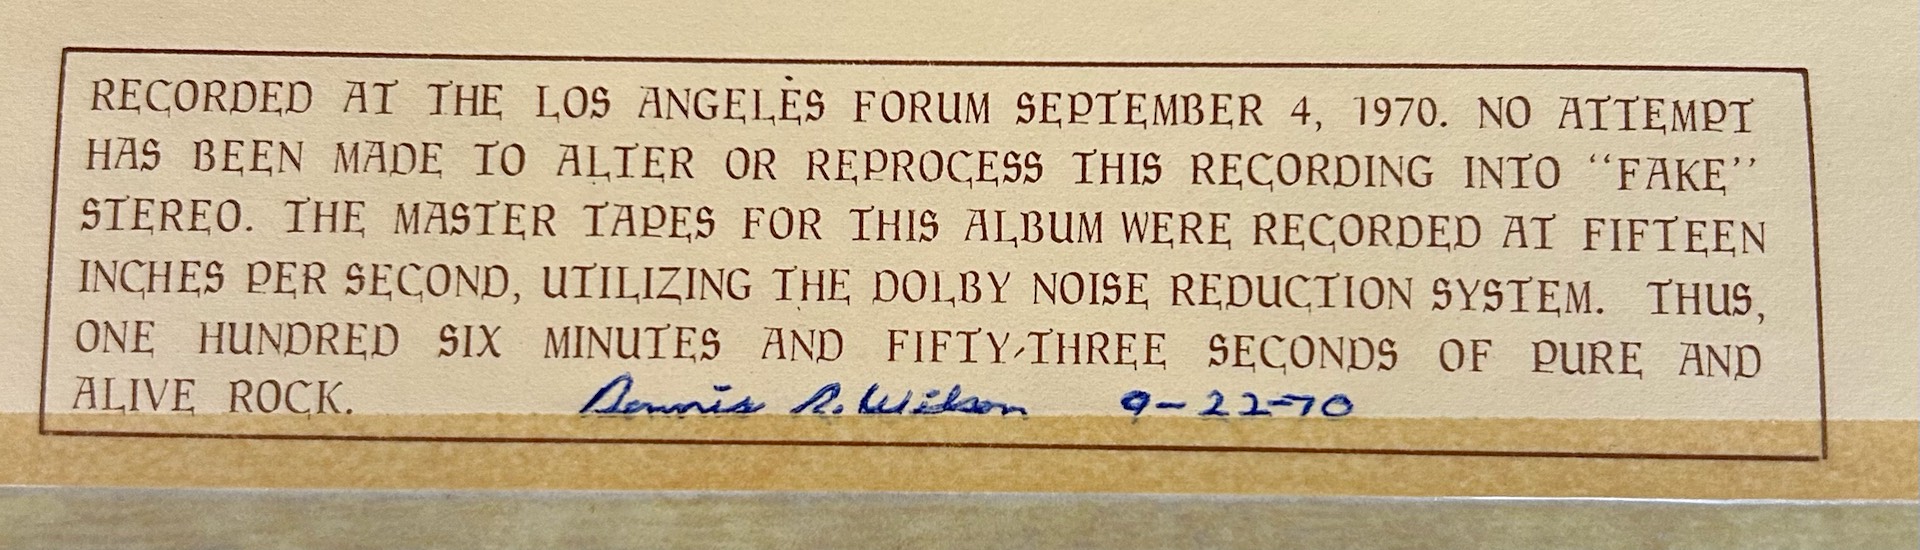 RECORDED AT THE LOS ANGELES FORUM SEPTEMBER 4, 1970. NO ATTEMPT
HAS BEEN MADE TO ALTER OR REPROCESS THIS RECORDING INTO “FAKE”
STEREO. THE MASTER TAPES FOR THIS ALBUM WERE RECORDED AT FIFTEEN
INCHES PER SECOND, UTILIZING THE DOLBY NOISE REDUCTION SYSTEM. THUS,
ONE HUNDRED SIX MINUTES AND FIFTY-THREE SECONDS OF PURE AND
ALIVE ROCK. Dennis R. Wilson 9-22-70